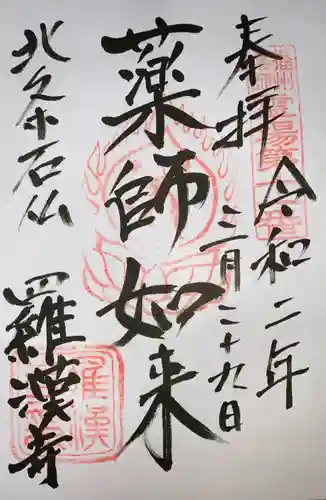 奉拝
令和二年
三月二十九日
薬師如来
北条石仏
羅漢寺